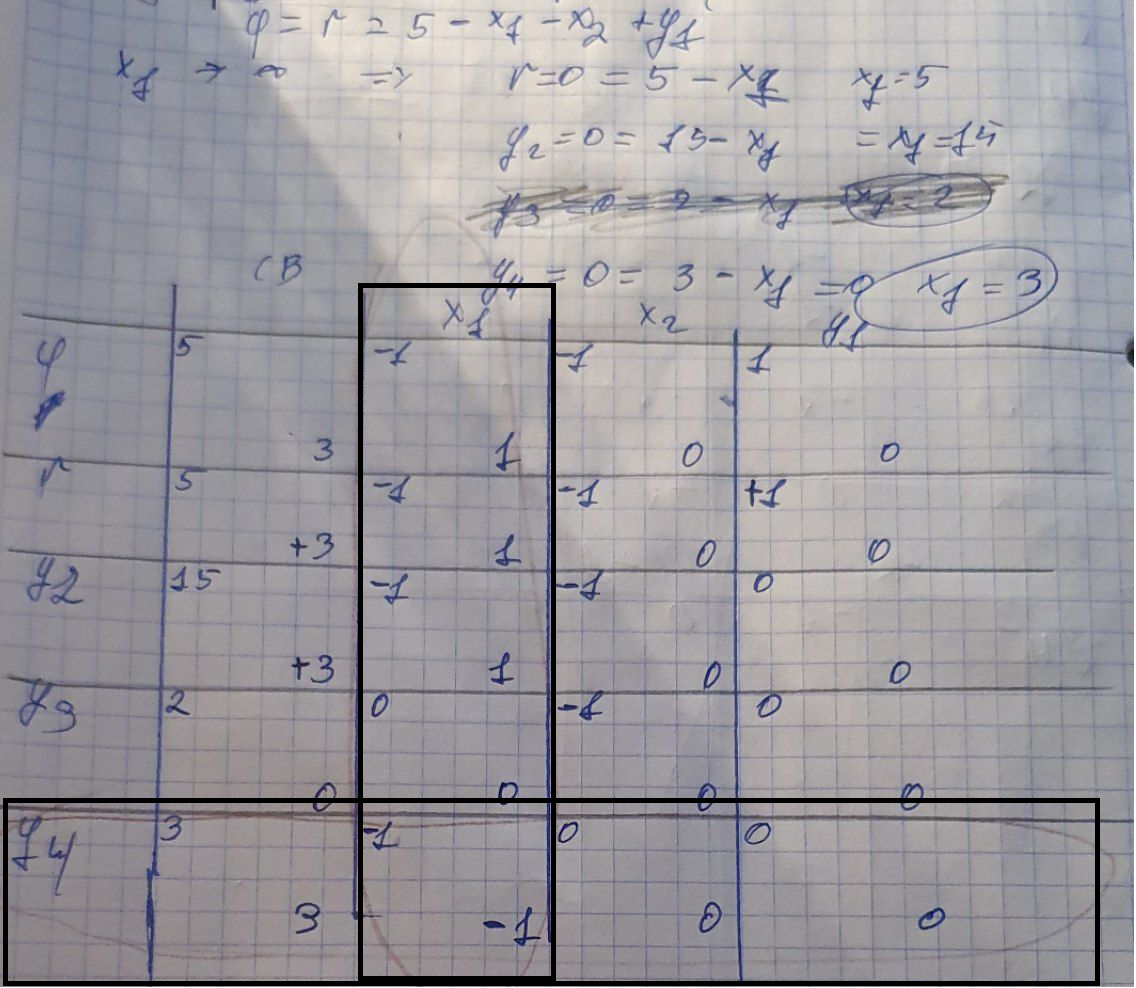 φ = r = 5 - x1 - x2 + y1
x1 → ∞ => r=0 = 5 - x1 x1=5
y2=0= 15- x1 = x1=15
y3=0= 2 - x1 x1=2
y4 = 0 = 3 - x1 =0 x1=3
СВ x1 x2 y1
φ 5 -1 -1 1
3 1 0 0
r 5 -1 -1 +1
+3 1 0 0
y2 15 -1 -1 0
+3 1 0 0
y3 2 0 -1 0
0 0 0 0
y4 3 -1 0 0
3 -1 0 0